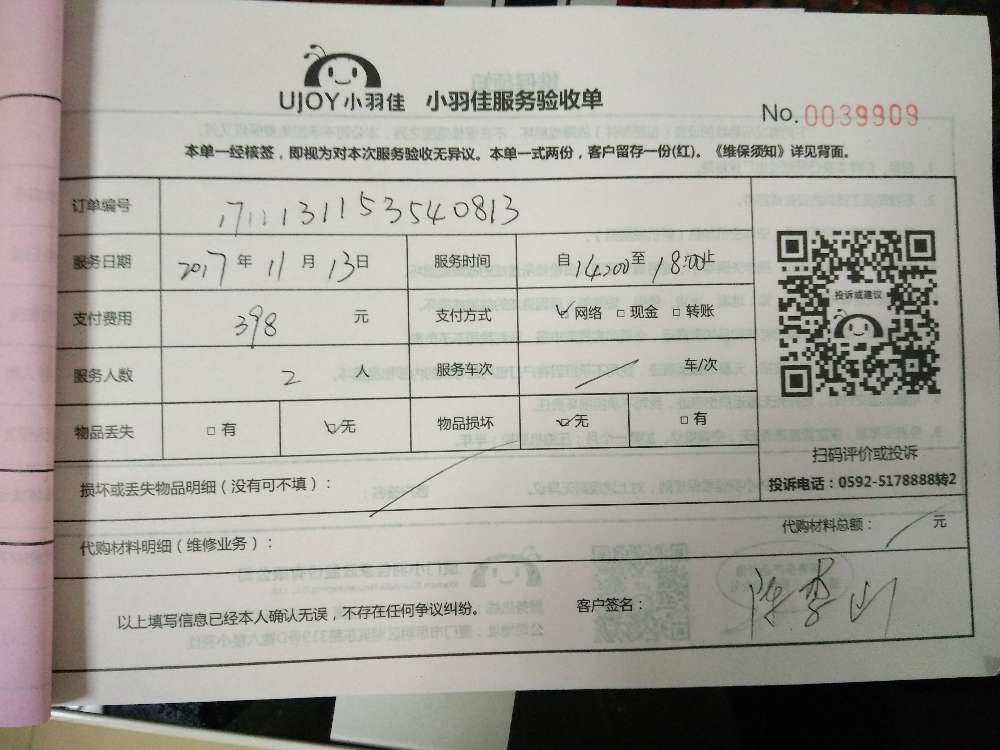 UJOY小羽佳 小羽佳服务验收单
No. 0039909
本单一经核签，即视为对本次服务验收无异议。本单一式两份，客户留存一份(红)。《维保须知》详见背面。
订单编号 171113115354​0813
服务日期 2017 年 11 月 13 日 服务时间 自 14:00 至 18:00 止
支付费用 398 元 支付方式 ☑ 网络 □ 现金 □ 转账
服务人数 2 人 服务车次 / 车/次
物品丢失 □ 有 ☑ 无 物品损坏 ☑ 无 □ 有
投诉或建议
扫码评价或投诉
投诉电话：0592-5178888转2
损坏或丢失物品明细（没有可不填）：
代购材料明细（维修业务）： 代购材料总额： / 元
以上填写信息已经本人确认无误，不存在任何争议纠纷。 客户签名：